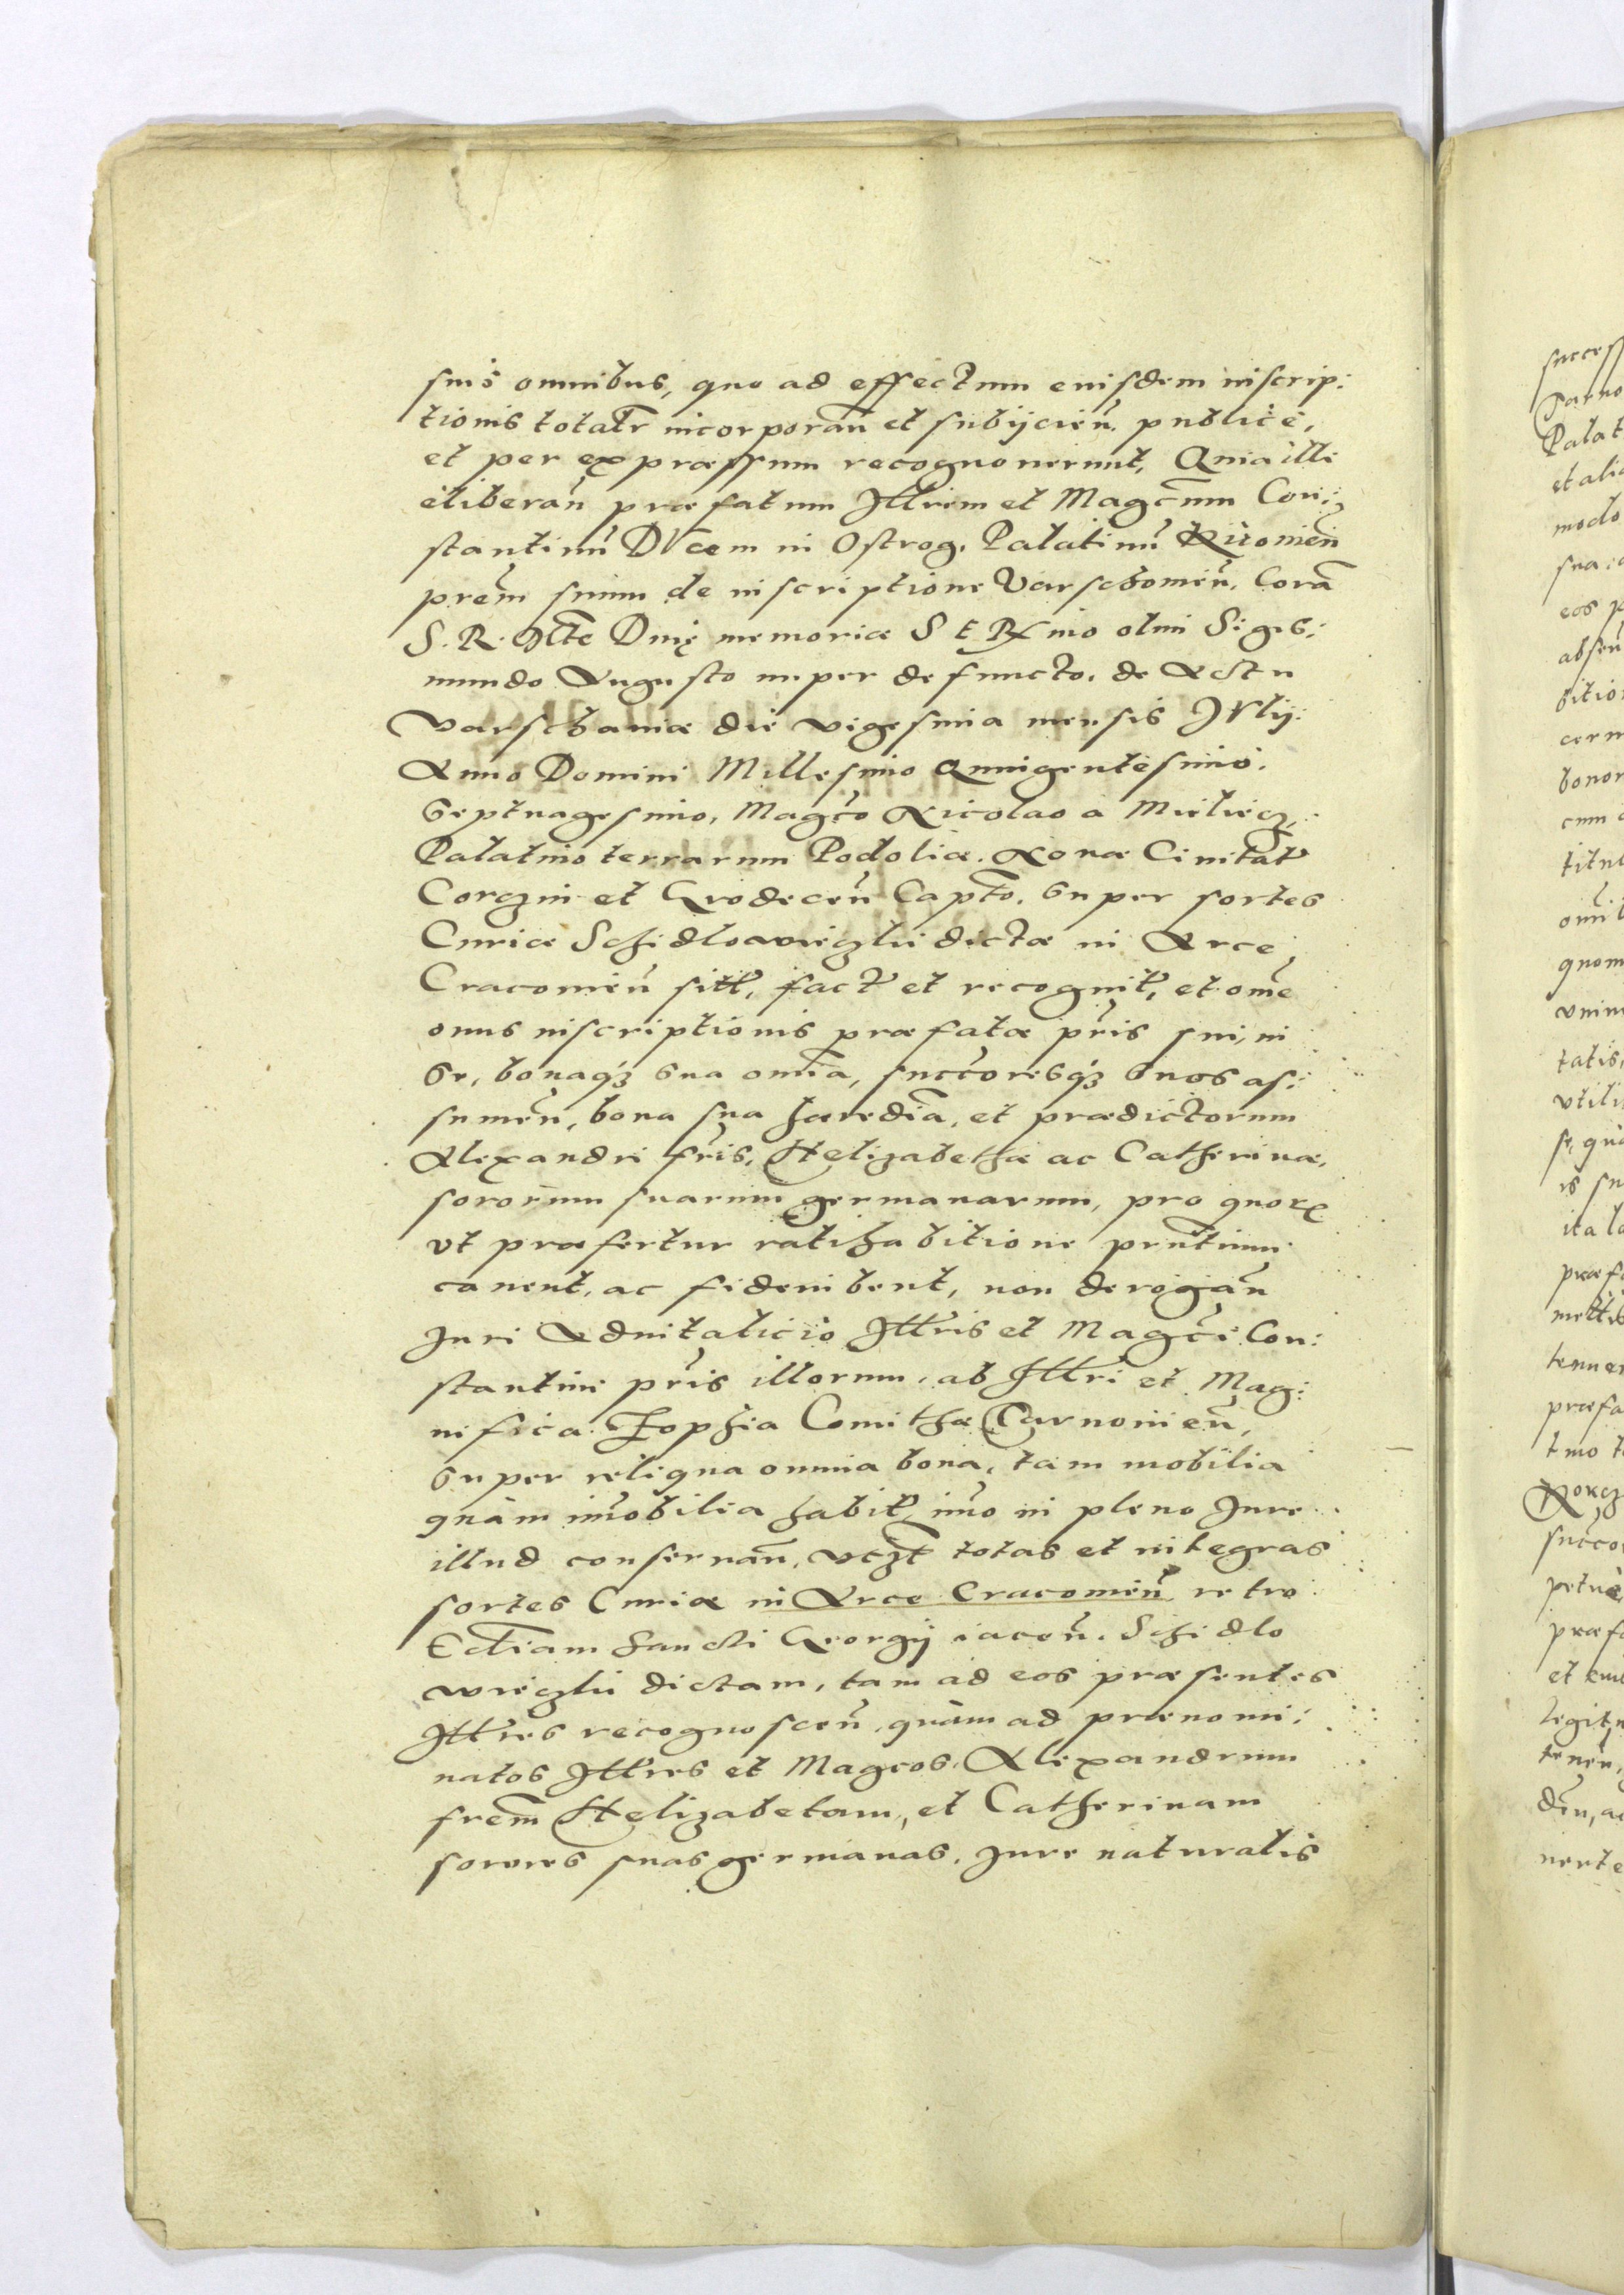 suis omnibus, quo ad effectum eiusdem inscrip:
tionis totalr incorporan̄ et subijcien̄. publicè,
et per expraessum recognouerunt, Quia illi
eliberan̄ praefatum Illrem et Magcum Con:
stantinū DVcem in Ostrog. Palatinū Kiiouien̄
prēm suum de inscriptione Varschouien̄. Corā
S. R. Mte Diuę memoriae
mundo Augusto nuper defuncto. de Actu
Varschauiae die vigesima mensis JVlij:
Anno Domini Millesimo Quuigentesimo.
Septuagesimo, Magco Nicolao a Mieliecz,
Palatino terrarum Podoliae. Nouae Ciuitat
Corczin et Grodecen̄ Capto. super sortes
Curiae Schidlowieczlii dictae in Arce
Cracouien̄ sitt, fact et recognit, et omē
onus inscriptionis praefatae pris sui, in
se, bonaqz sua omīa, succoresqz suos as:
sumen̄, bona sua haredīa, et praedictorum
Alexandri fris, Helizabethae ac Catherinae,
sororum suarum germanarum, pro quorz
vt praefertur ratihabitione prntium
cauent, ac fideiubent, non derogan̄
Juri Aduitalicio Illris et Magci Con:
stantini pris illorum, ab Illri et Mag:
nifica Zophia Comitha Tarnouien̄,
super reliqua omnia bona, tam mobilia
quàm im̄obilia habit, imo in pleno Jure
illud conseruan̄, vczt totas et integras
sortes Curiae in Arce Cracouien̄ retro
Eccliam Sancti Georgij iacen̄. Schidlo
wieczlii dictam, tam ad eos praesentes
Illres recognoscen̄, quàm ad praenomi:
natos Illres et Magcos Alexandrum
frēm Helizabetam, et Catherinam
sorores suas germanas, Jure naturalis
success
Tarno
Palat
et alio
modo
sua
eos p
absen
bitio
cern
bonor
cum
titul
quom
tatis,
vtili
is su
ita
praefa
tenue
praefa
succo
petuè,
praefa
legit
nente